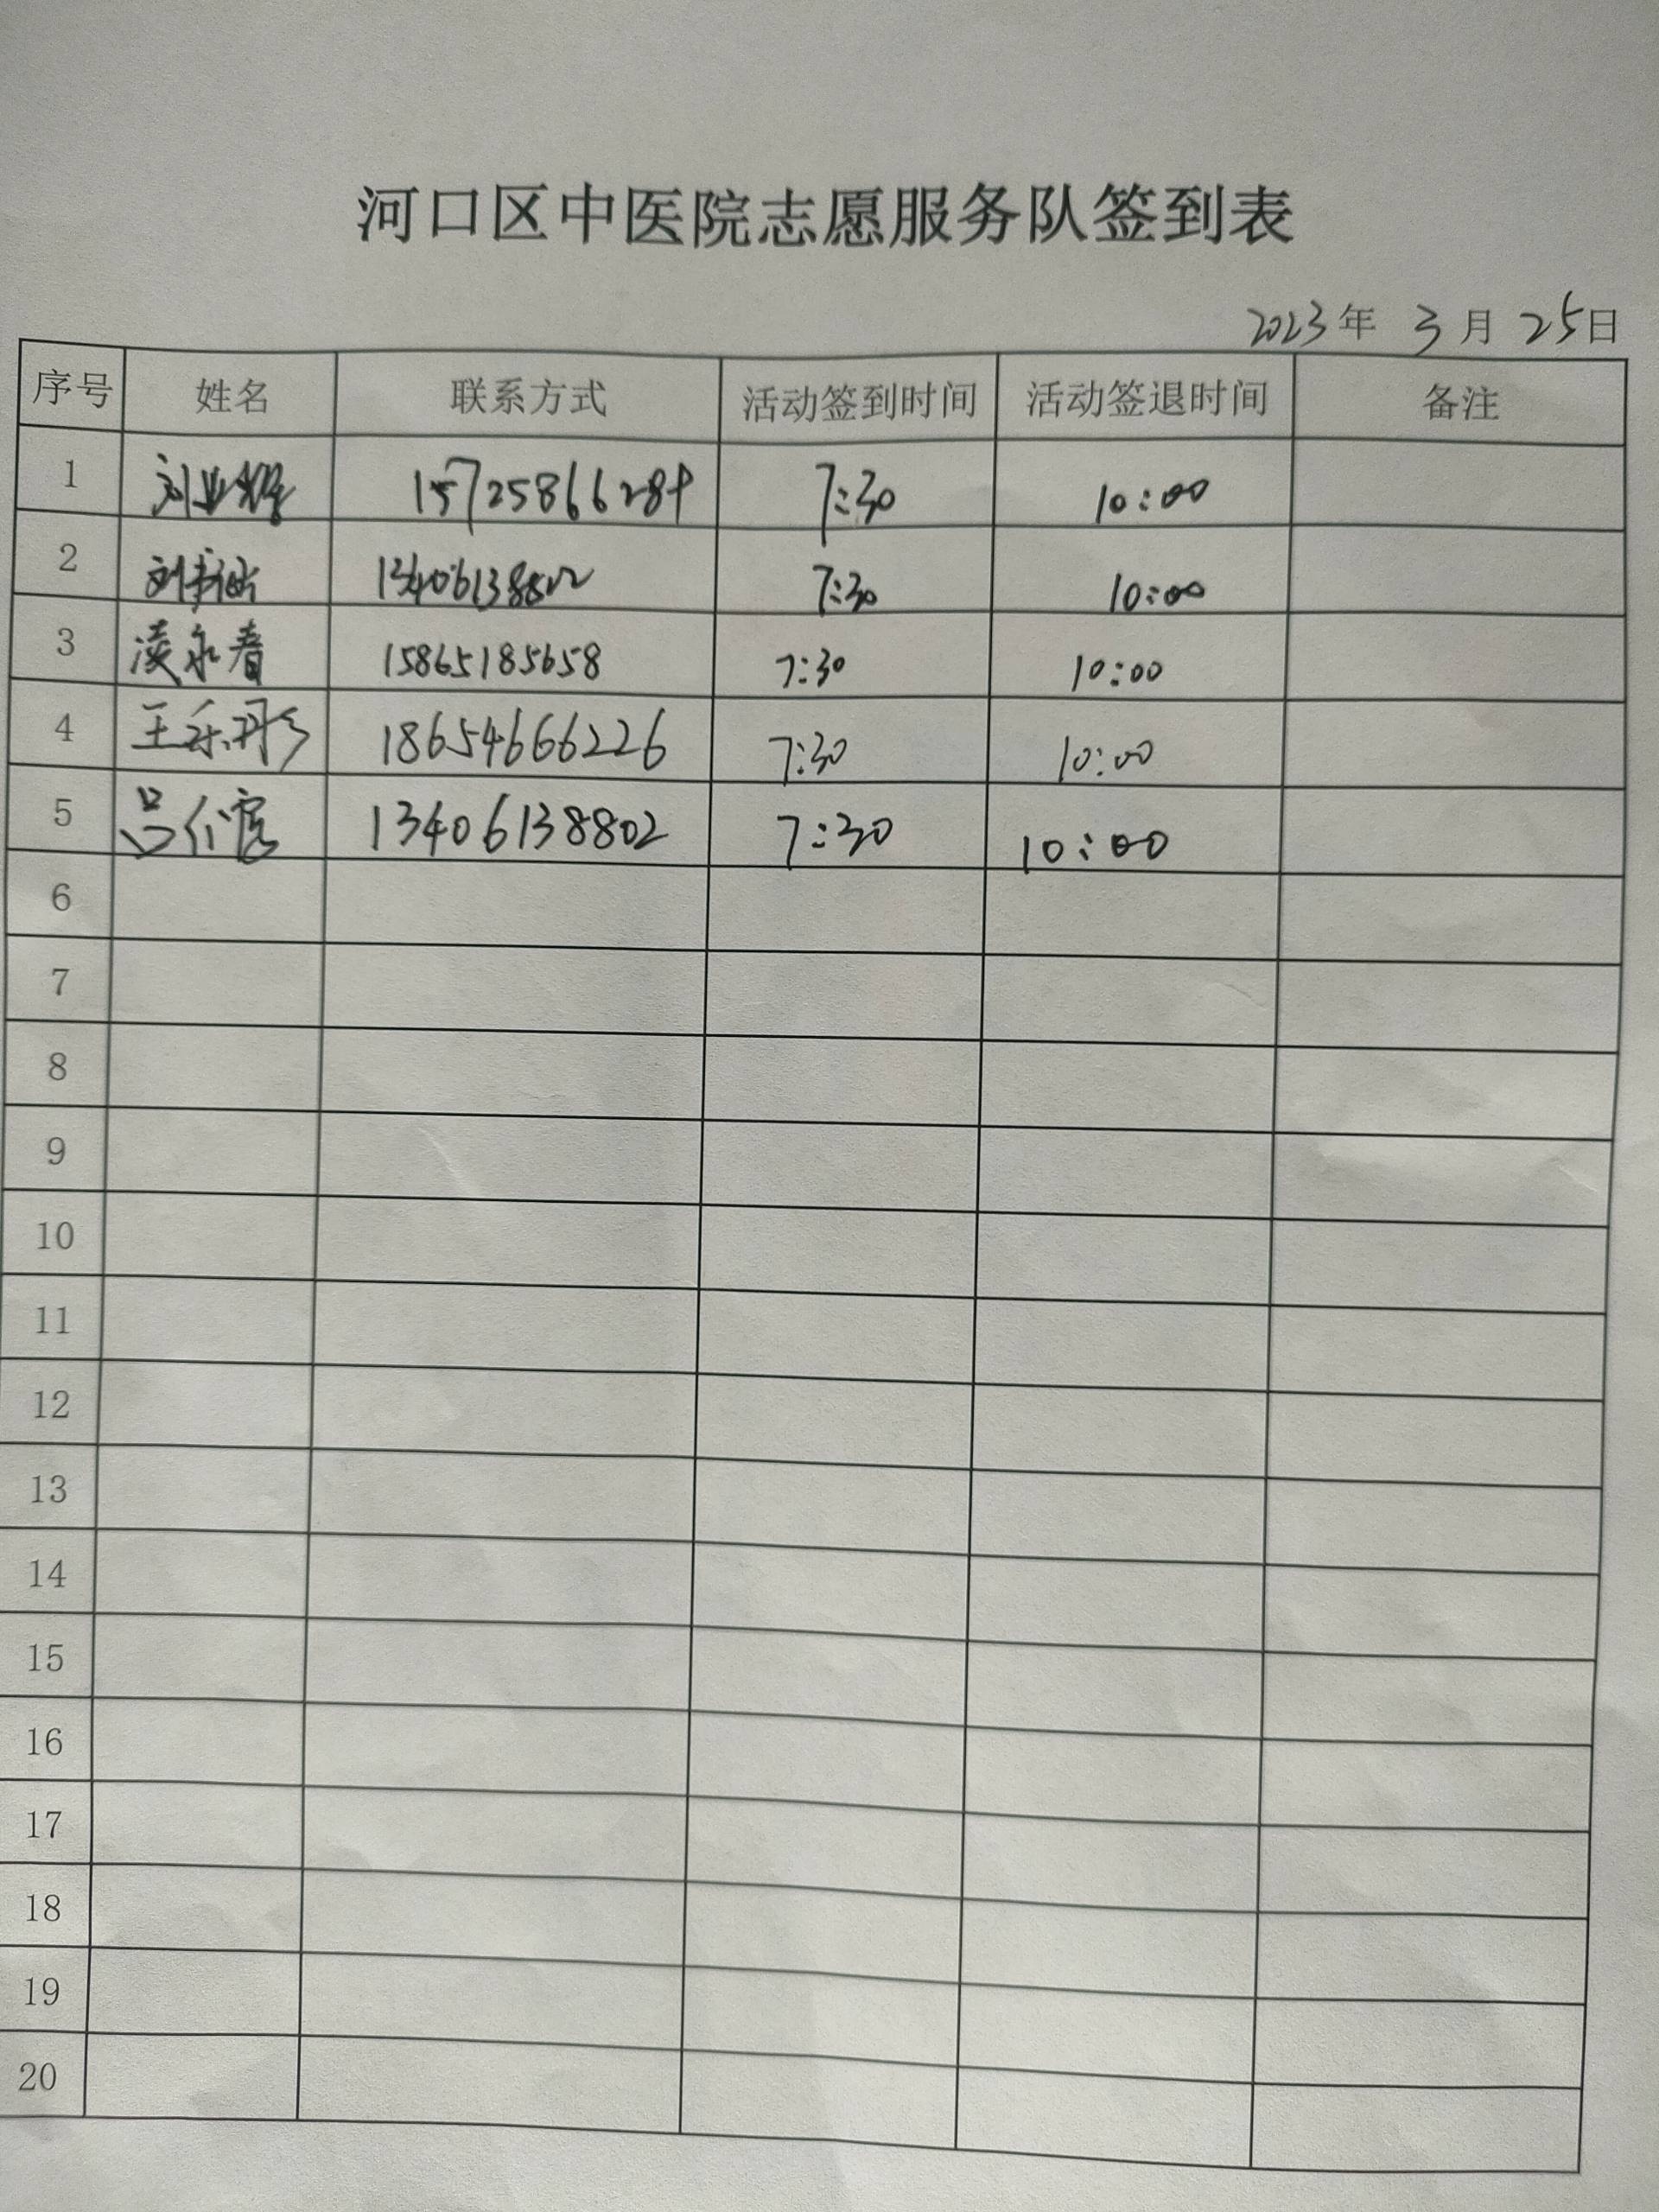 河口区中医院志愿服务队签到表
2023年 3月 25日
序号 姓名 联系方式 活动签到时间 活动签退时间 备注
1 刘业 15725866289 7:30 10:00
2 刘 7:30 10:00
3 凌永春 15865185658 7:30 10:00
4 王乐彤 18654666226 7:30 10:00
5 吕 13406138802 7:30 10:00
6
7
8
9
10
11
12
13
14
15
16
17
18
19
20